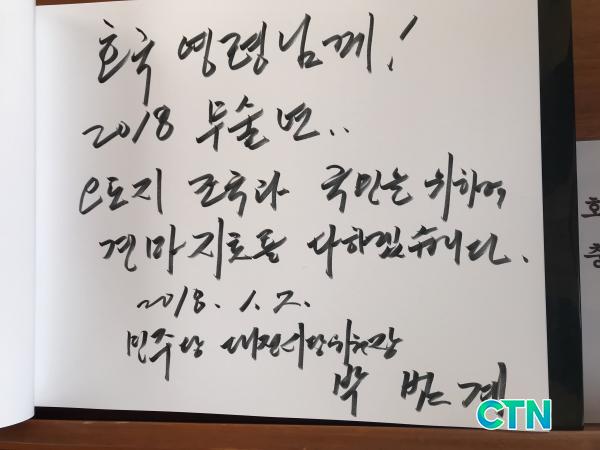 호국 영령님께!
2018 무술년..
오로지 조국과 국민을 위하여
견마지로를 다하겠습니다.
2018. 1. 2.
민주당 대전시당위원장
박 범 계
CTN